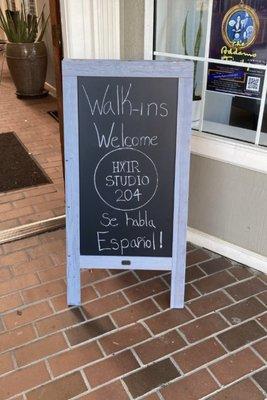 Walk-ins
Welcome
HXIR
STUDIO
204
Se habla
Español!
the
Addams